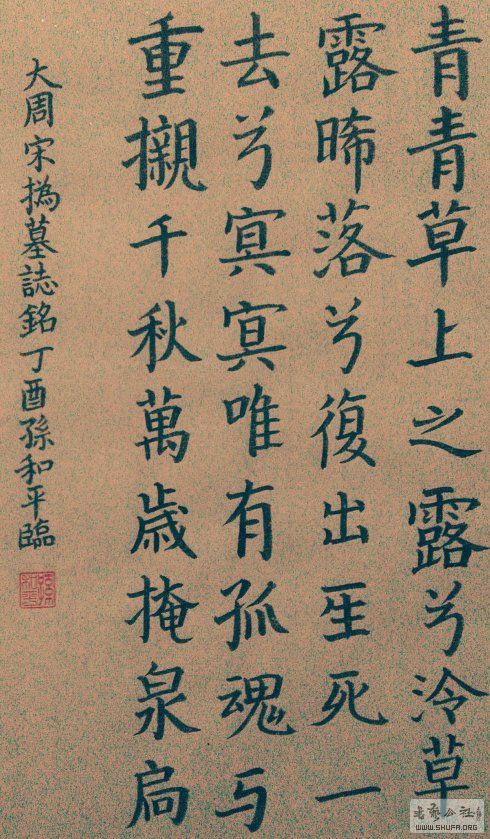 青青草上之露兮泠草
露晞落兮復出生死一
去兮冥冥唯有孤魂与
重櫬千秋萬歲掩泉扃
大周宋撝墓誌銘丁酉孫和平臨
WWW.SHUFA.ORG